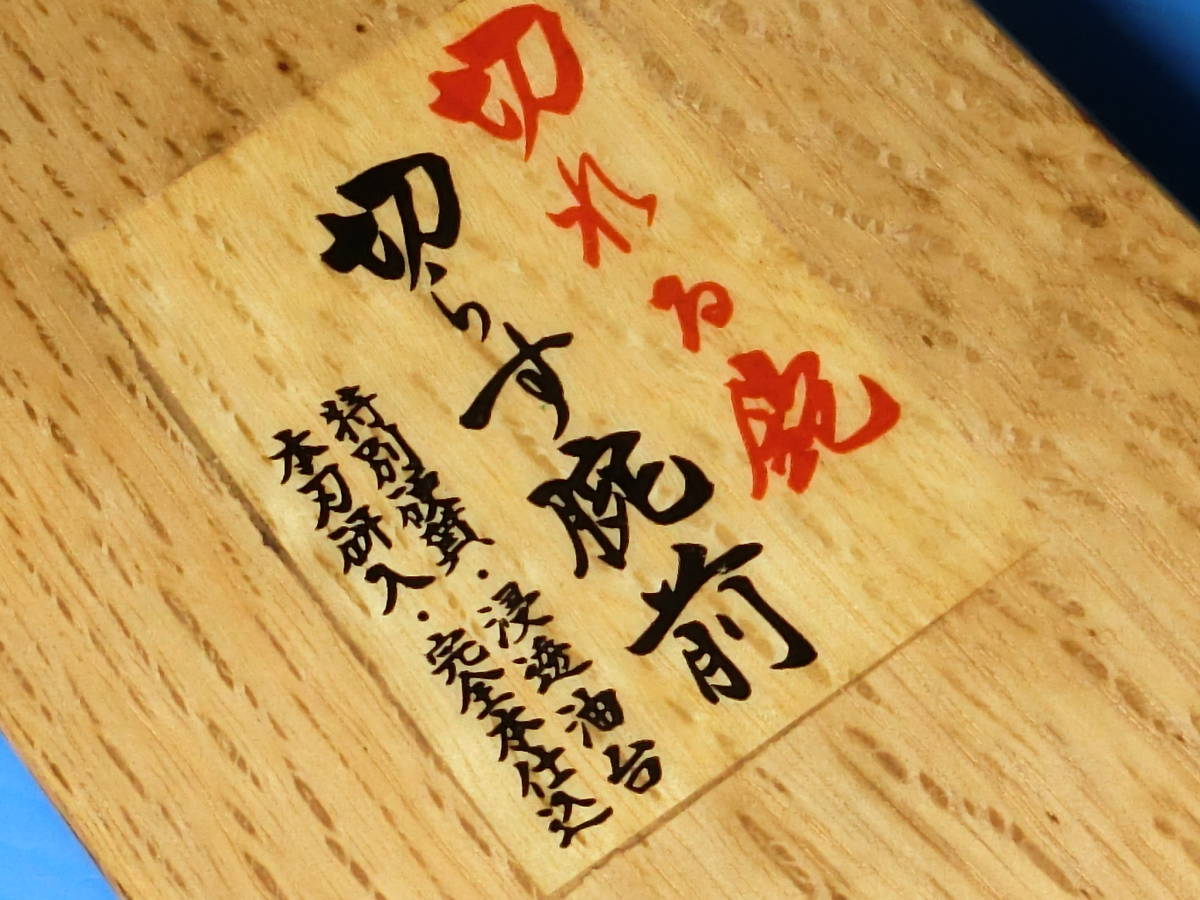 切れる腕
切らす腕前
特別硬質・浸透油台
本刃研入・完全本仕込